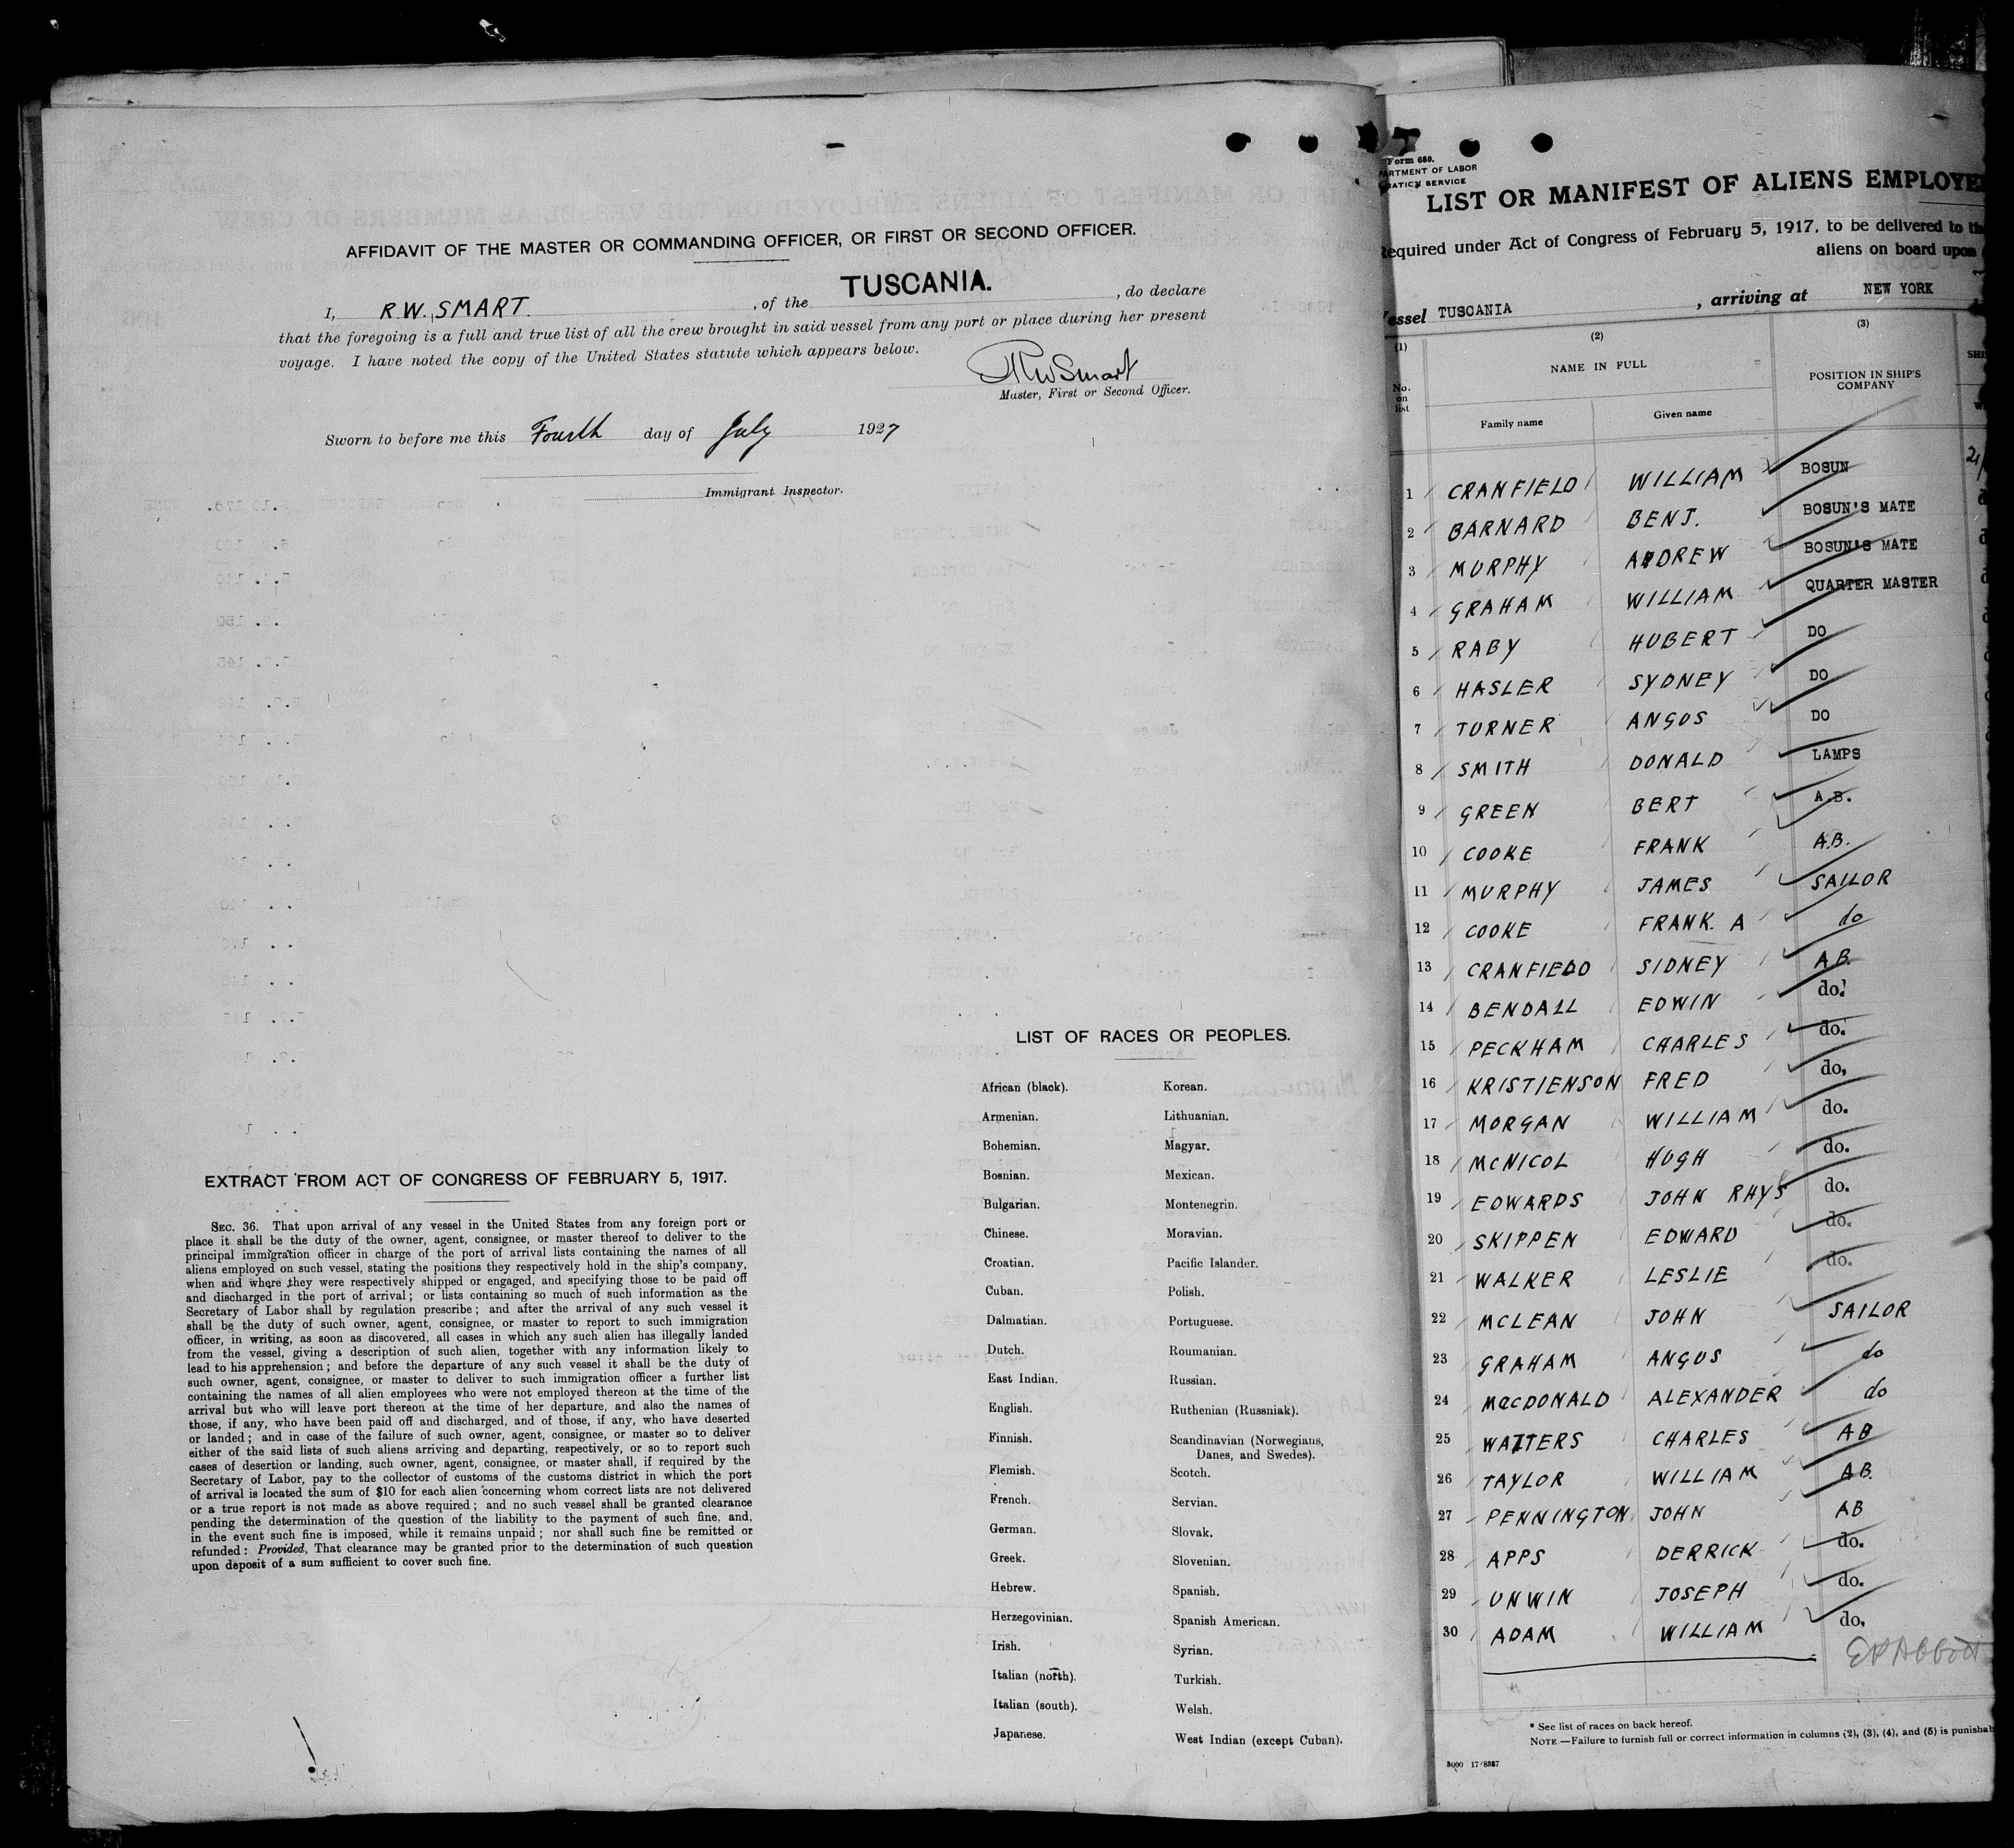 AFFIDAVIT OF THE MASTER OR COMMANDING OFFICER, OR FIRST OR SECOND OFFICER.
I, R.W. SMART. , of the TUSCANIA. , do declare
that the foregoing is a full and true list of all the crew brought in said vessel from any port or place during her present
voyage. I have noted the copy of the United States statute which appears below.
RWSmart
Master, First or Second Officer.
Sworn to before me this Fourth day of July 1927
Immigrant Inspector.
EXTRACT FROM ACT OF CONGRESS OF FEBRUARY 5, 1917.
SEC. 36. That upon arrival of any vessel in the United States from any foreign port or
place it shall be the duty of the owner, agent, consignee, or master thereof to deliver to the
principal immigration officer in charge of the port of arrival lists containing the names of all
aliens employed on such vessel, stating the positions they respectively hold in the ship's company,
when and where they were respectively shipped or engaged, and specifying those to be paid off
and discharged in the port of arrival; or lists containing so much of such information as the
Secretary of Labor shall by regulation prescribe; and after the arrival of any such vessel it
shall be the duty of such owner, agent, consignee, or master to report to such immigration
officer, in writing, as soon as discovered, all cases in which any such alien has illegally landed
from the vessel, giving a description of such alien, together with any information likely to
lead to his apprehension; and before the departure of any such vessel it shall be the duty of
such owner, agent, consignee, or master to deliver to such immigration officer a further list
containing the names of all alien employees who were not employed thereon at the time of the
arrival but who will leave port thereon at the time of her departure, and also the names of
those, if any, who have been paid off and discharged, and of those, if any, who have deserted
or landed; and in case of the failure of such owner, agent, consignee, or master so to deliver
either of the said lists of such aliens arriving and departing, respectively, or so to report such
cases of desertion or landing, such owner, agent, consignee, or master shall, if required by the
Secretary of Labor, pay to the collector of customs of the customs district in which the port
of arrival is located the sum of $10 for each alien concerning whom correct lists are not delivered
or a true report is not made as above required; and no such vessel shall be granted clearance
pending the determination of the question of the liability to the payment of such fine, and,
in the event such fine is imposed, while it remains unpaid; nor shall such fine be remitted or
refunded: Provided, That clearance may be granted prior to the determination of such question
upon deposit of a sum sufficient to cover such fine.
LIST OF RACES OR PEOPLES.
African (black). Korean.
Armenian. Lithuanian.
Bohemian. Magyar.
Bosnian. Mexican.
Bulgarian. Montenegrin.
Chinese. Moravian.
Croatian. Pacific Islander.
Cuban. Polish.
Dalmatian. Portuguese.
Dutch. Roumanian.
East Indian. Russian.
English. Ruthenian (Russniak).
Finnish. Scandinavian (Norwegians,
Danes, and Swedes).
Flemish. Scotch.
French. Servian.
German. Slovak.
Greek. Slovenian.
Hebrew. Spanish.
Herzegovinian. Spanish American.
Irish. Syrian.
Italian (north). Turkish.
Italian (south). Welsh.
Japanese. West Indian (except Cuban).
Form 680.
PARTMENT OF LABOR
RATION SERVICE
LIST OR MANIFEST OF ALIENS EMPLOYE
Required under Act of Congress of February 5, 1917, to be delivered to th
aliens on board upon
essel TUSCANIA , arriving at NEW YORK
(1) (2) (3)
No. on list NAME IN FULL POSITION IN SHIP'S COMPANY SHI
Family name Given name W
1 CRANFIELD WILLIAM BOSUN
2 BARNARD BENJ. BOSUN'S MATE
3 MURPHY ANDREW BOSUN'S MATE
4 GRAHAM WILLIAM QUARTER MASTER
5 RABY HUBERT DO
6 HASLER SYDNEY DO
7 TURNER ANGUS DO
8 SMITH DONALD LAMPS
9 GREEN BERT A.B.
10 COOKE FRANK A.B.
11 MURPHY JAMES SAILOR
12 COOKE FRANK. A do
13 CRANFIELD SIDNEY A B.
14 BENDALL EDWIN do.
15 PECKHAM CHARLES do.
16 KRISTIENSON FRED do.
17 MORGAN WILLIAM do.
18 McNICOL HUGH do.
19 EDWARDS JOHN RHYS do.
20 SKIPPEN EDWARD do.
21 WALKER LESLIE do.
22 MCLEAN JOHN SAILOR
23 GRAHAM ANGUS do
24 MacDONALD ALEXANDER do
25 WATTERS CHARLES AB
26 TAYLOR WILLIAM AB.
27 PENNINGTON JOHN AB
28 APPS DERRICK do.
29 UNWIN JOSEPH do.
30 ADAM WILLIAM do.
* See list of races on back hereof.
NOTE.—Failure to furnish full or correct information in columns (2), (3), (4), and (5) is punishab